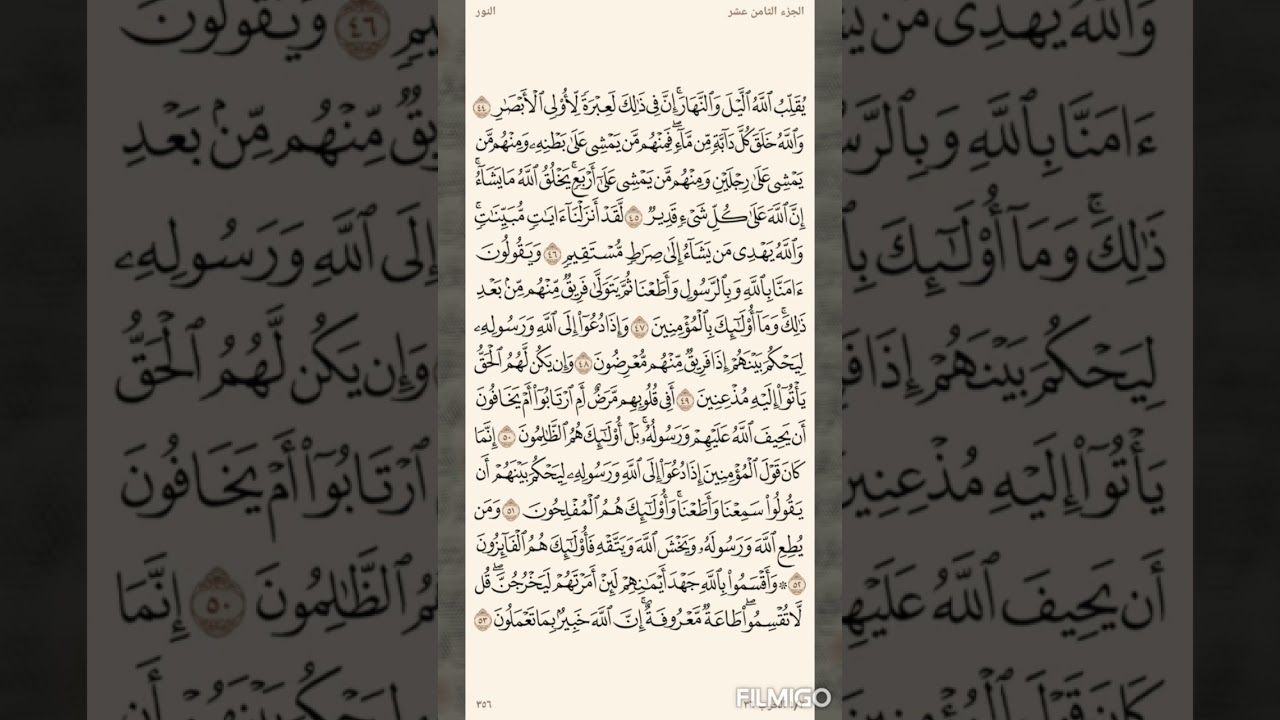 الجزء الثامن عشر
النور
يُقَلِّبُ ٱللَّهُ ٱلَّيۡلَ وَٱلنَّهَارَۚ إِنَّ فِي ذَٰلِكَ لَعِبۡرَةٗ لِّأُوْلِي ٱلۡأَبۡصَٰرِ ٤٤
وَٱللَّهُ خَلَقَ كُلَّ دَآبَّةٖ مِّن مَّآءٖۖ فَمِنۡهُم مَّن يَمۡشِي عَلَىٰ بَطۡنِهِۦ وَمِنۡهُم مَّن
يَمۡشِي عَلَىٰ رِجۡلَيۡنِ وَمِنۡهُم مَّن يَمۡشِي عَلَىٰٓ أَرۡبَعٖۚ يَخۡلُقُ ٱللَّهُ مَا يَشَآءُۚ
إِنَّ ٱللَّهَ عَلَىٰ كُلِّ شَيۡءٖ قَدِيرٞ ٤٥ لَّقَدۡ أَنزَلۡنَآ ءَايَٰتٖ مُّبَيِّنَٰتٖۚ
وَٱللَّهُ يَهۡدِي مَن يَشَآءُ إِلَىٰ صِرَٰطٖ مُّسۡتَقِيمٖ ٤٦ وَيَقُولُونَ
ءَامَنَّا بِٱللَّهِ وَبِٱلرَّسُولِ وَأَطَعۡنَا ثُمَّ يَتَوَلَّىٰ فَرِيقٞ مِّنۡهُم مِّنۢ بَعۡدِ
ذَٰلِكَۚ وَمَآ أُوْلَٰٓئِكَ بِٱلۡمُؤۡمِنِينَ ٤٧ وَإِذَا دُعُوٓاْ إِلَى ٱللَّهِ وَرَسُولِهِۦ
لِيَحۡكُمَ بَيۡنَهُمۡ إِذَا فَرِيقٞ مِّنۡهُم مُّعۡرِضُونَ ٤٨ وَإِن يَكُن لَّهُمُ ٱلۡحَقُّ
يَأۡتُوٓاْ إِلَيۡهِ مُذۡعِنِينَ ٤٩ أَفِي قُلُوبِهِم مَّرَضٌ أَمِ ٱرۡتَابُوٓاْ أَمۡ يَخَافُونَ
أَن يَحِيفَ ٱللَّهُ عَلَيۡهِمۡ وَرَسُولُهُۥۚ بَلۡ أُوْلَٰٓئِكَ هُمُ ٱلظَّٰلِمُونَ ٥٠ إِنَّمَا
كَانَ قَوۡلَ ٱلۡمُؤۡمِنِينَ إِذَا دُعُوٓاْ إِلَى ٱللَّهِ وَرَسُولِهِۦ لِيَحۡكُمَ بَيۡنَهُمۡ أَن
يَقُولُواْ سَمِعۡنَا وَأَطَعۡنَاۚ وَأُوْلَٰٓئِكَ هُمُ ٱلۡمُفۡلِحُونَ ٥١ وَمَن
يُطِعِ ٱللَّهَ وَرَسُولَهُۥ وَيَخۡشَ ٱللَّهَ وَيَتَّقۡهِ فَأُوْلَٰٓئِكَ هُمُ ٱلۡفَآئِزُونَ
٥٢ ۞ وَأَقۡسَمُواْ بِٱللَّهِ جَهۡدَ أَيۡمَٰنِهِمۡ لَئِنۡ أَمَرۡتَهُمۡ لَيَخۡرُجُنَّۖ قُل
لَّا تُقۡسِمُواْۖ طَاعَةٞ مَّعۡرُوفَةٌۚ إِنَّ ٱللَّهَ خَبِيرُۢ بِمَا تَعۡمَلُونَ ٥٣
٣٥٦
FILMIGO